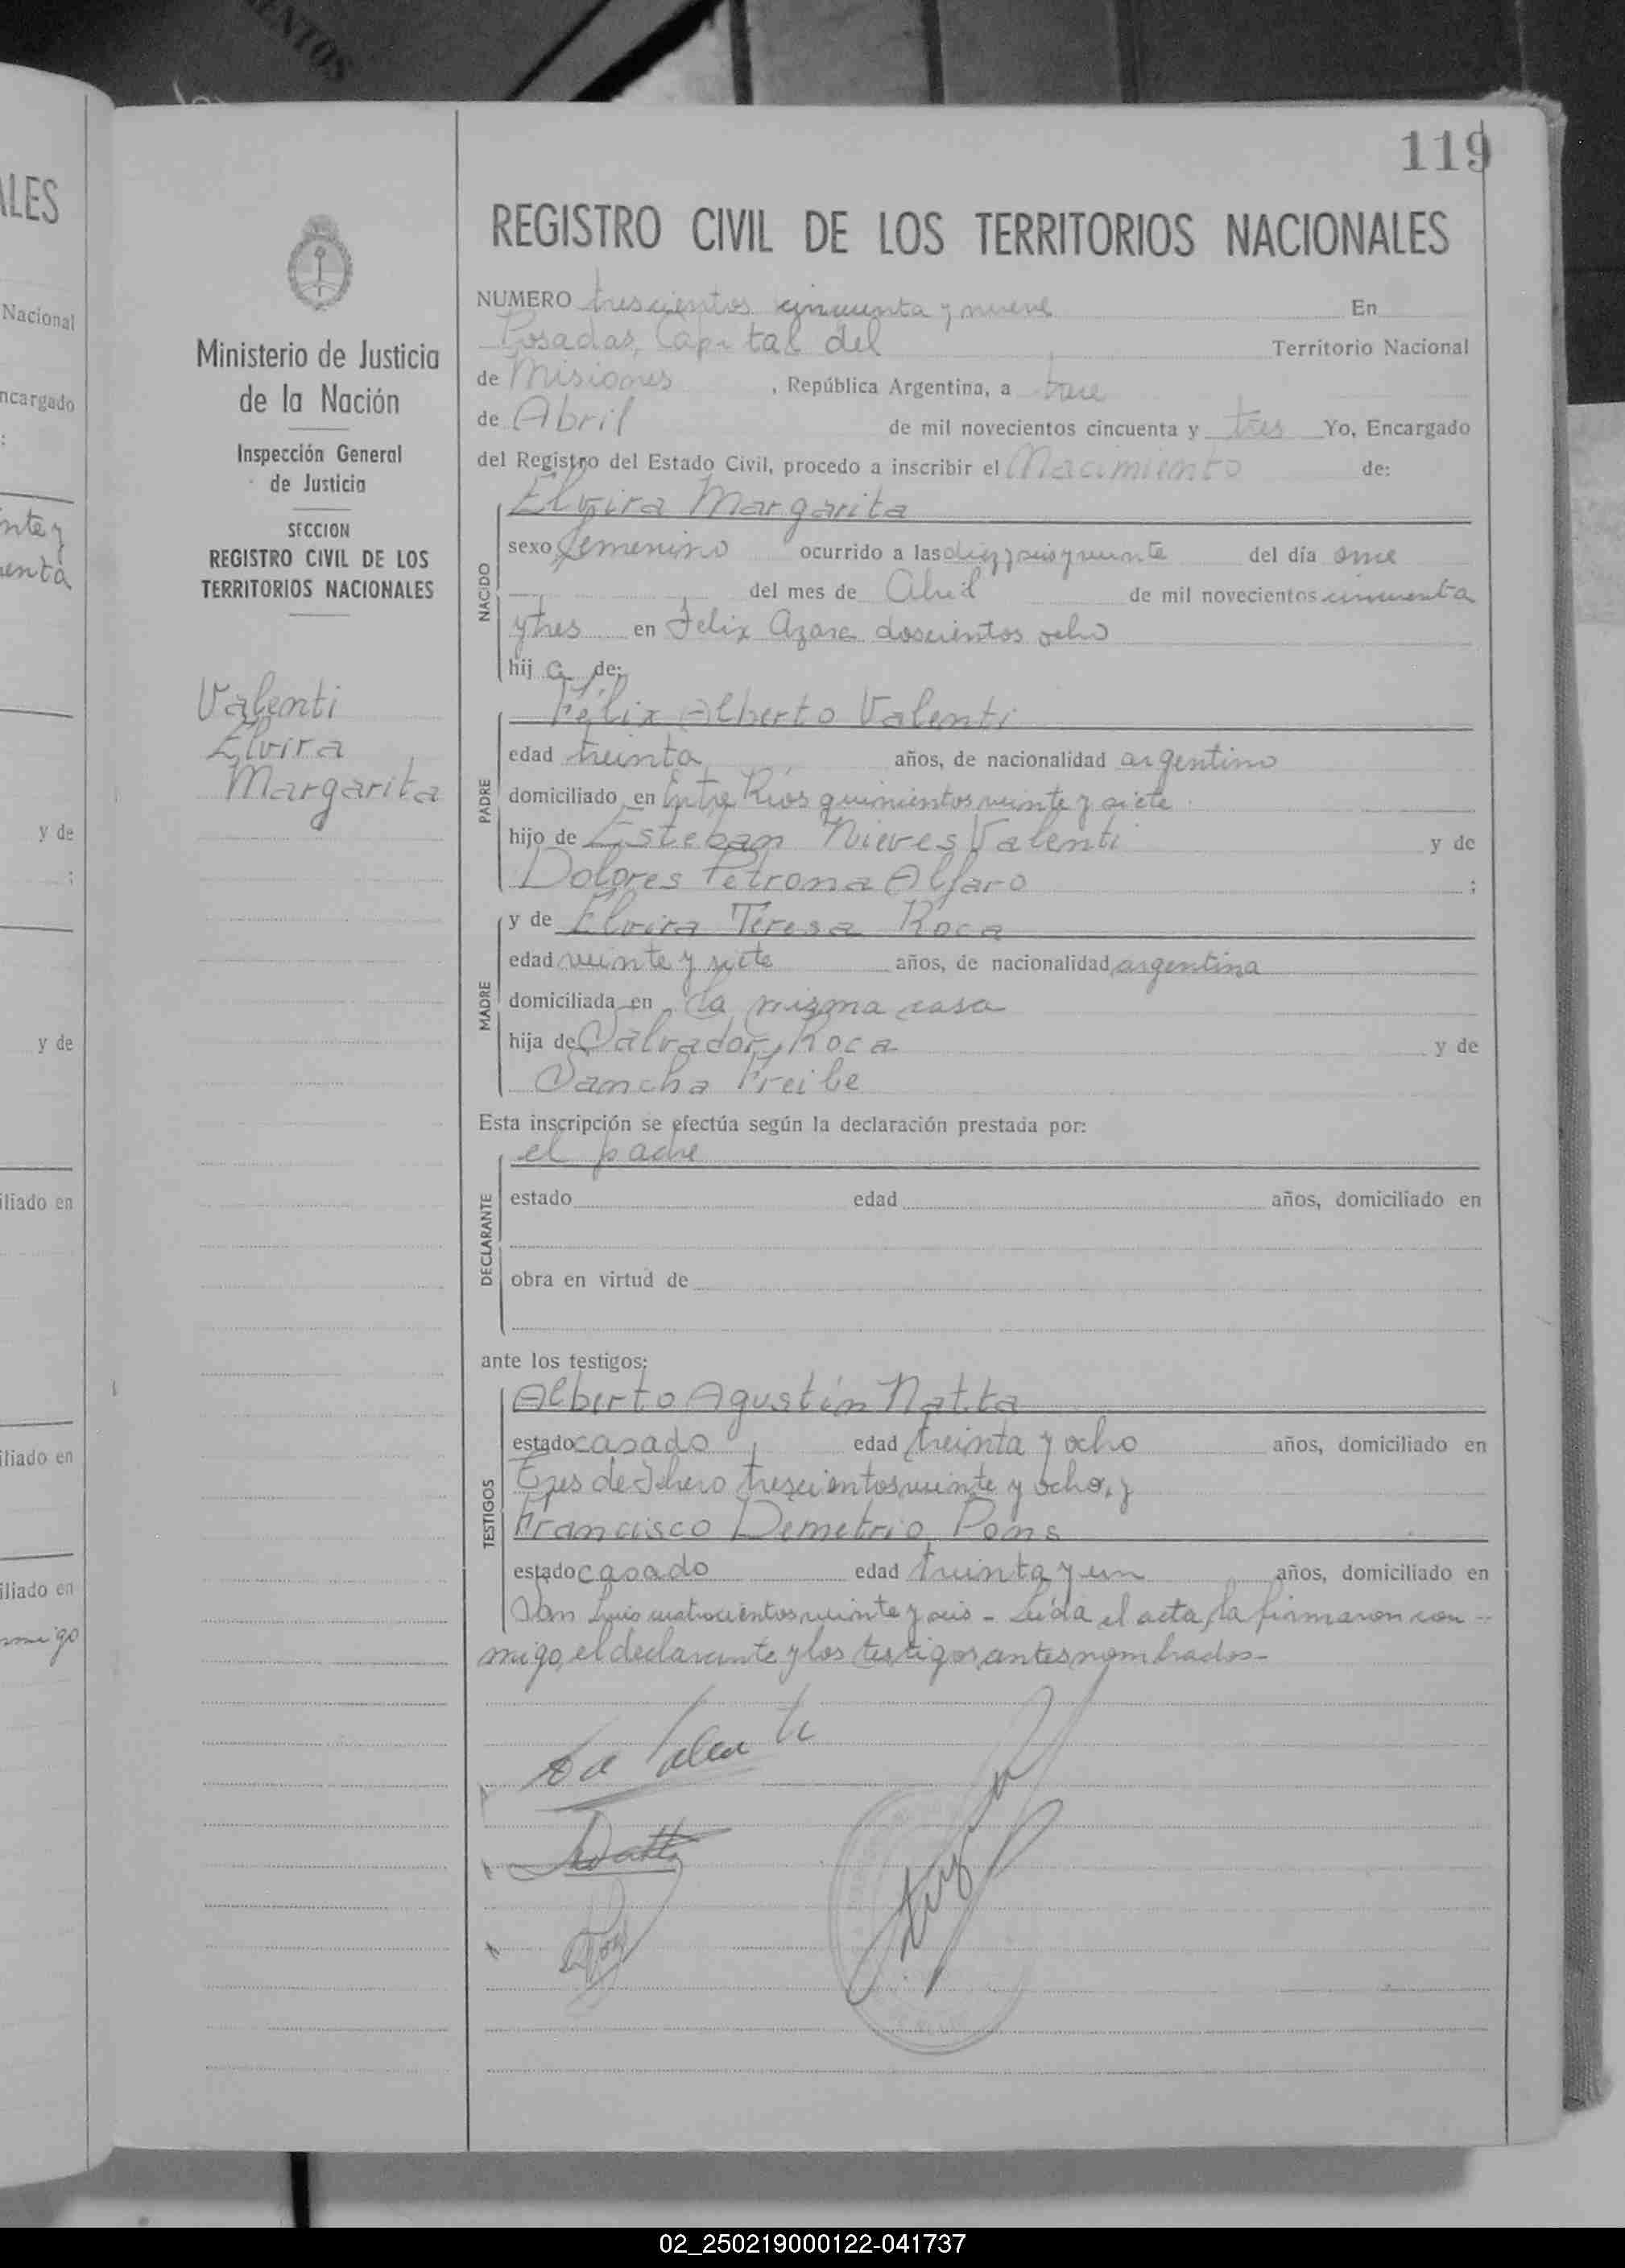 119
REGISTRO CIVIL DE LOS TERRITORIOS NACIONALES
Ministerio de Justicia
de la Nación
Inspección General
de Justicia
SECCION
REGISTRO CIVIL DE LOS
TERRITORIOS NACIONALES
Valenti
Elvira
Margarita
NUMERO trescientos cincuenta y nueve En
Posadas, Capital del Territorio Nacional
de Misiones, República Argentina, a trece
de Abril de mil novecientos cincuenta y tres Yo, Encargado
del Registro del Estado Civil, procedo a inscribir el Nacimiento de:
NACIDO
Elvira Margarita
sexo femenino ocurrido a las diez y seis y veinte del día once
del mes de Abril de mil novecientos cincuenta
y tres en Felix Azara doscientos ocho
hij a de:
PADRE
Félix Alberto Valenti
edad treinta años, de nacionalidad argentino
domiciliado en Entre Ríos quinientos veinte y siete
hijo de Esteban Nieves Valenti y de
Dolores Petrona Alfaro ;
MADRE
y de Elvira Teresa Roca
edad veinte y siete años, de nacionalidad argentina
domiciliada en la misma casa
hija de Salvador Roca y de
Sancha Freibe
Esta inscripción se efectúa según la declaración prestada por:
DECLARANTE
el padre
estado edad años, domiciliado en
obra en virtud de
ante los testigos:
TESTIGOS
Alberto Agustín Natta
estado casado edad treinta y ocho años, domiciliado en
Tres de Febrero trescientos veinte y ocho, y
Francisco Demetrio Pons
estado casado edad treinta y un años, domiciliado en
San Luis cuatrocientos veinte y seis - Leída el acta, la firmaron con-
migo, el declarante y los testigos antes nombrados-
ALES
Nacional
ncargado
y de
y de
iliado en
iliado en
iliado en
02_250219000122-041737